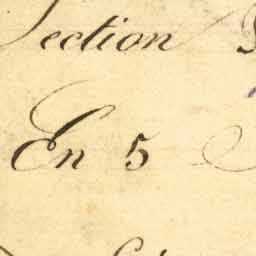 Section
En 5